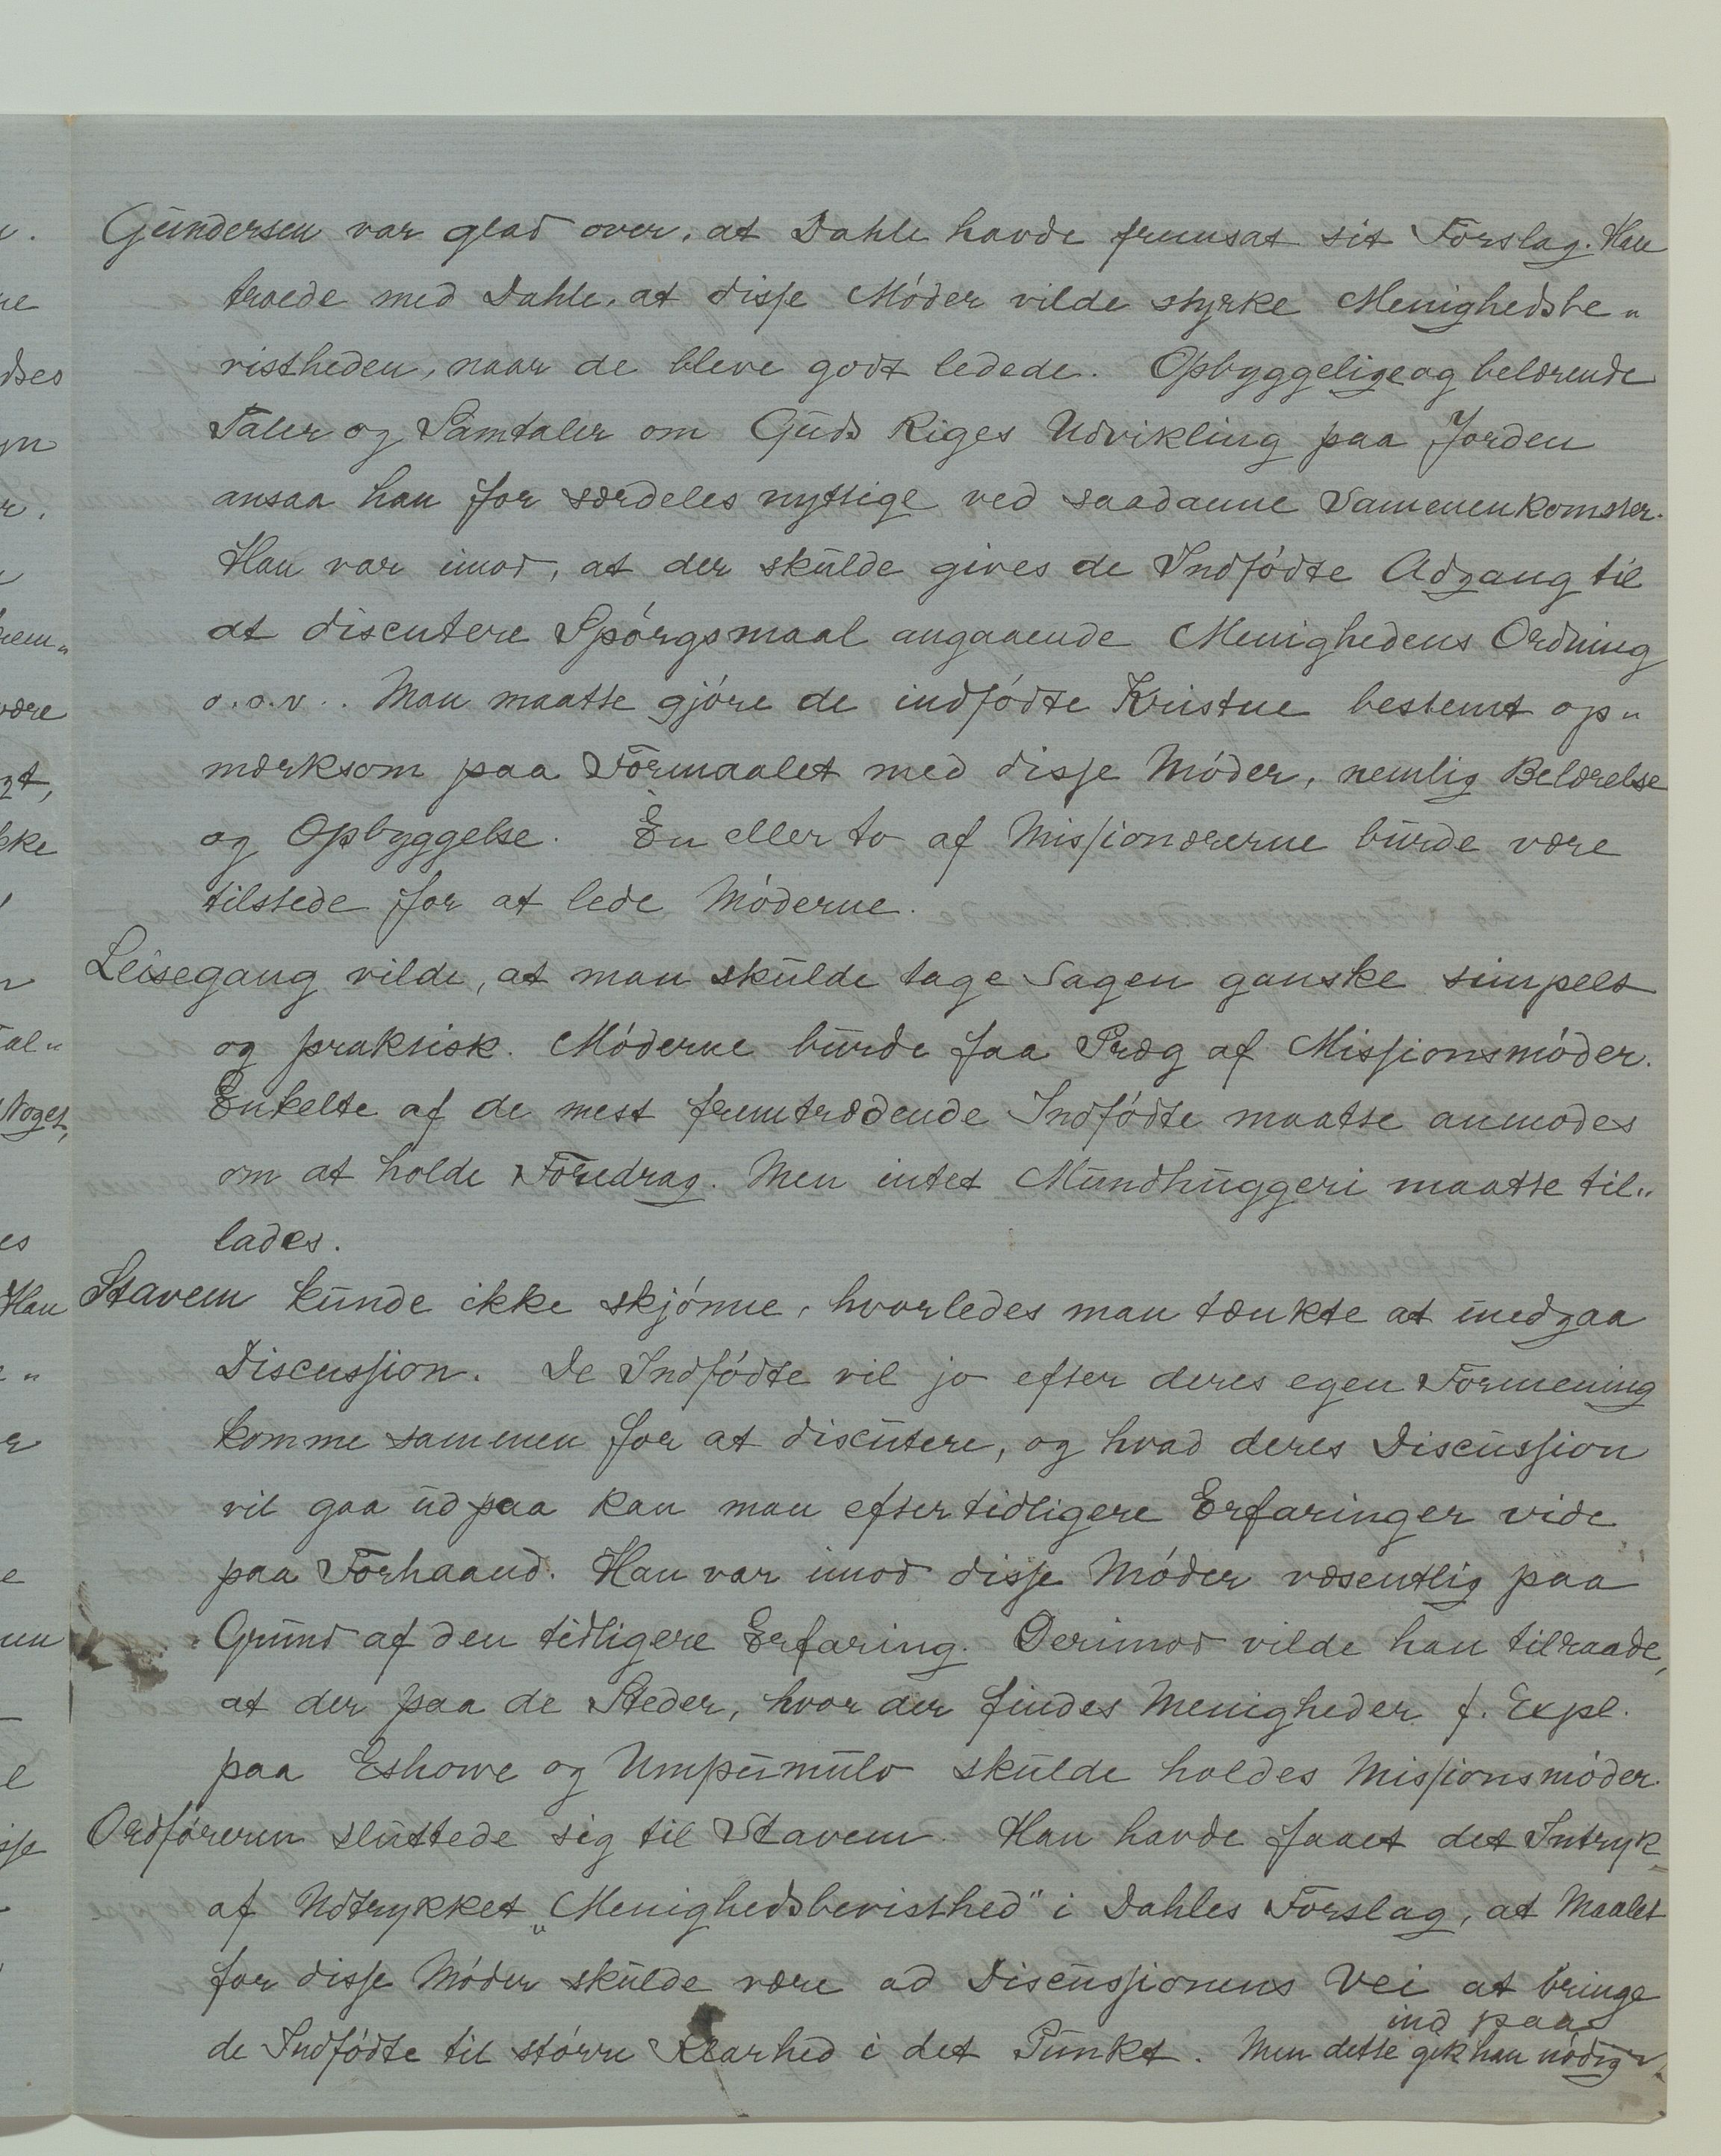 Gundersen var glad over, at Dahle havde fremsat sit Forslag. Han
troede med Dahle, at disse Móder vilde styrke Menighedsbe„
vistheden, naar de bleve godt ledede. Opbyggelige og belærende
Taler og Samtaler om Guds Riges Udvikling paa Jorden
ansaa han for særdeles nyttige ved saadanne Sammenkomster.
Han var imod, at der skulde gives de Indfódte Adgang til
at discutere Spórgsmaal angaaende Menighedens Ordning
o.s.v.. Man maatte gjóre de indfódte Kristne bestemt op„
mærksom paa Formaalet med disse Móder, nemlig Belærelse
og Opbyggelse. En eller to af Missionærerne burde være
tilstede for at lede Móderne.
Leisegang vilde, at man skulde tage Sagen ganske simpelt
og praktisk. Móderne burde faa Præg af Missionsmóder.
Enkelte af de mest fremtrædende Indfódte maatte anmodes
om at holde Foredrag. Men intet Mundhuggeri maatte til„
lades.
Stavem kunde ikke skjónne, hvorledes man tænkte at undgaa
Discussion. De Indfódte vil jo efter deres egen Formening
komme sammen for at discutere, og hvad deres Discussion
vil gaa ud paa kan man efter tidligere Erfaringer vide
paa Forhaand. Han var imod disse Móder væsentlig paa
Grund af den tidligere Erfaring. Derimod vilde han tilraade,
at der paa de Steder, hvor der findes Menigheder f. Expl.
paa Eshowe og Umpumulo skulde holdes Missionsmóder.
Ordfóreren sluttede sig til Stavem. Han havde faaet det Intryk
af Udtrykket „Menighedsbevisthed" i Dahles Forslag, at Maalet
for disse Móder skulde være ad Discussionens Vei at bringe
de Indfódte til stórre Klarhed i det Punkt. Men dette gik han nódig
ind paa